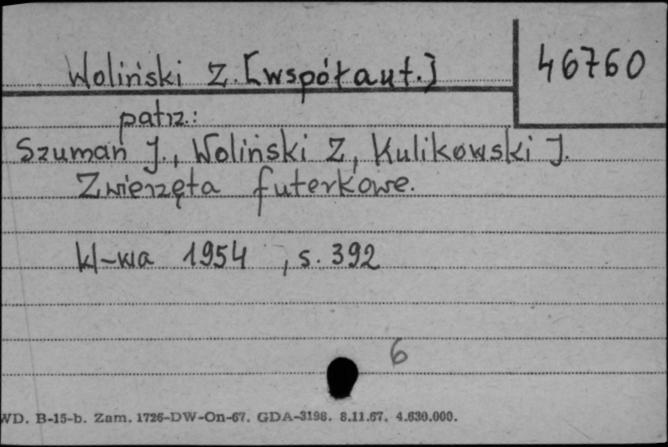 Woliński Z. [współaut.]
46760
patrz.:
Szuman J., Woliński Z, Kulikowski J.
Zwierzęta futerkowe.
kl-wa 1954 , s. 392
6
WD. B-15-b. Zam. 1726-DW-On-67. GDA-3198. 8.11.67. 4.630.000.